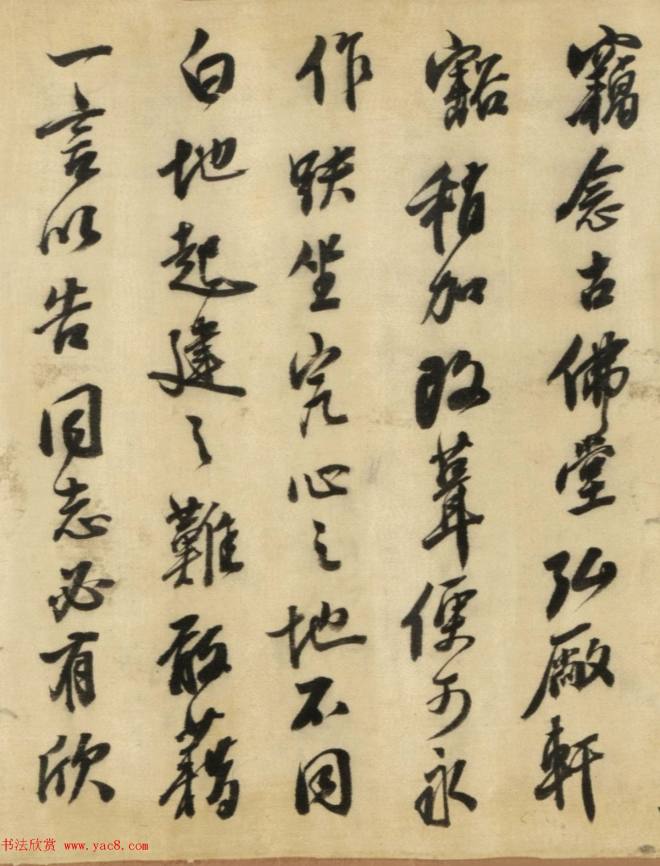 竊念古佛堂弘厰軒
豁稍加改葺便可永
作趺坐究心之地不同
白地起建之難敢藉
一言以告同志必有欣
书法欣赏 www.yac8.com